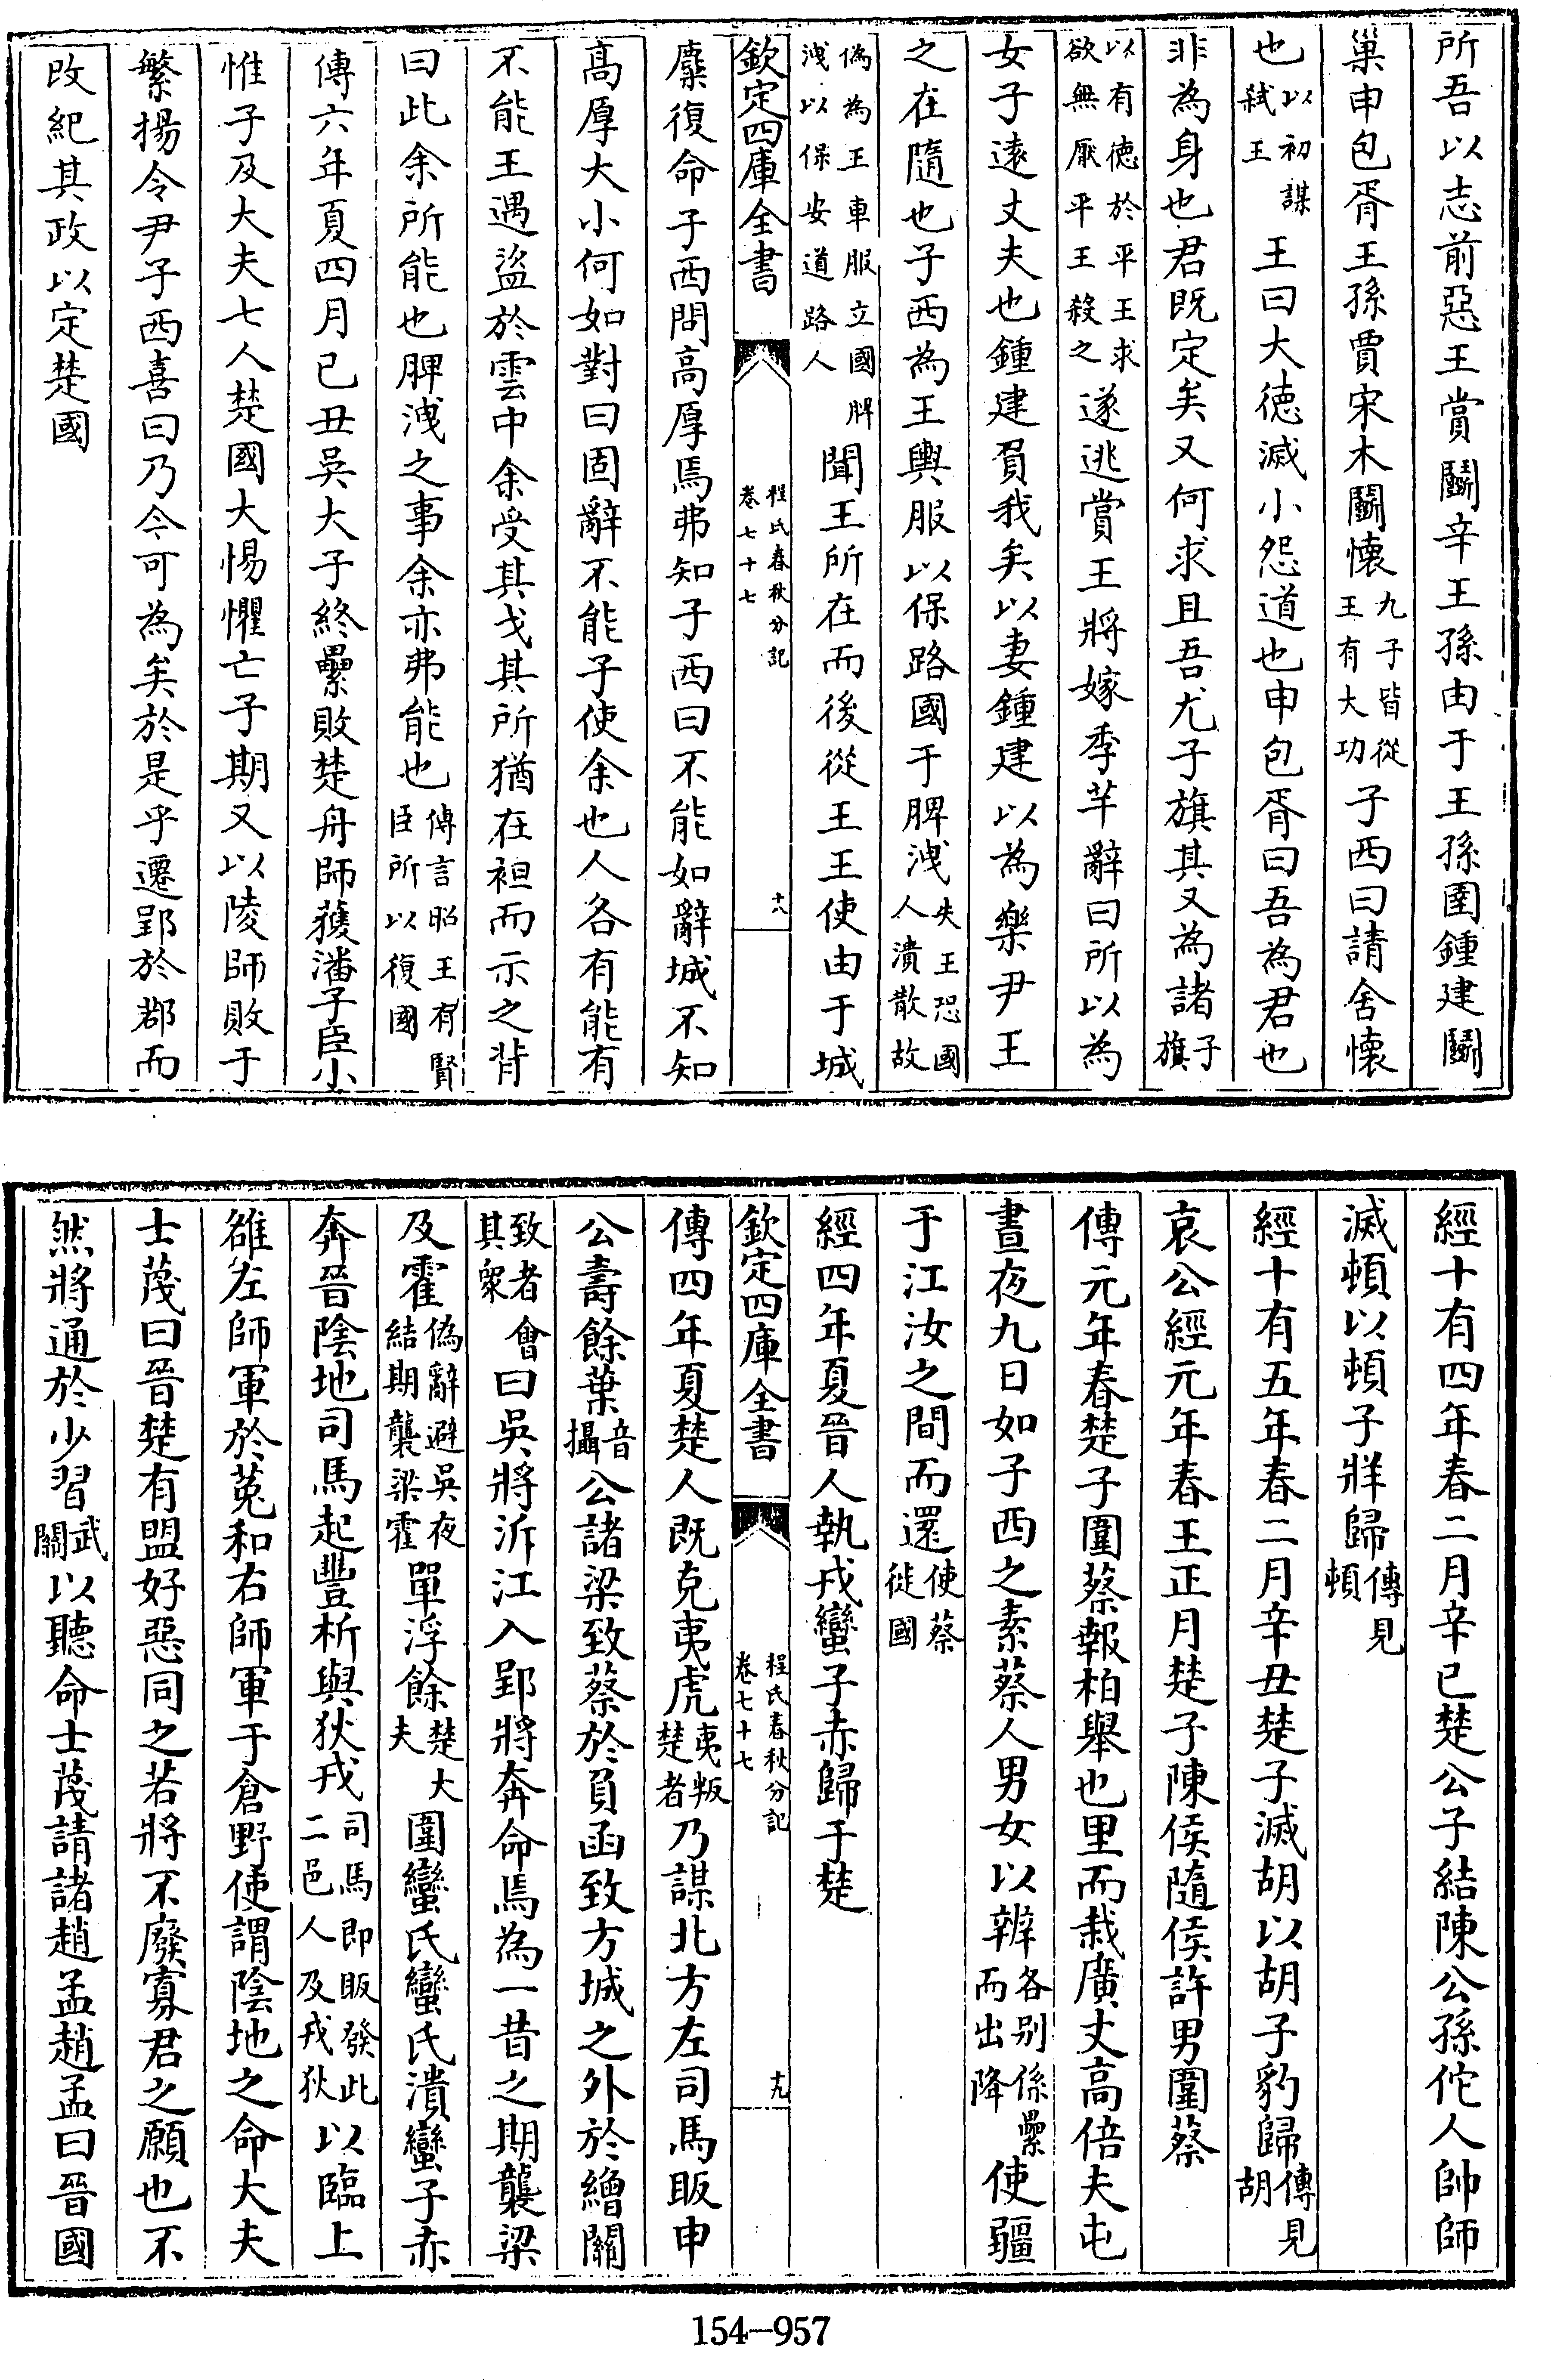 所吾以志前惡王賞鬭辛王孫由于王孫圉鍾建鬭
巢申包胥王孫賈宋木鬭懷九子皆從王有大功子西曰請舍懷
也以初謀弒王王曰大徳滅小怨道也申包胥曰吾為君也
非為身也君既定矣又何求且吾尤子旗其又為諸子旗
以有徳於平王求欲無厭平王殺之遂逃賞王將嫁季芊辭曰所以為
女子逺丈夫也鍾建負我矣以妻鍾建以為樂尹王
之在隨也子西為王輿服以保路國于脾洩失王恐國人潰散故
偽為王車服立國脾洩以保安道路人聞王所在而後從王王使由于城
欽定四庫全書
程氏春秋分記
卷七十七
十八
麇復命子西問髙厚焉弗知子西曰不能如辭城不知
髙厚大小何如對曰固辭不能子使余也人各有能有
不能王遇盜於雲中余受其戈其所猶在袒而示之背
曰此余所能也脾洩之事余亦弗能也傳言昭王有賢臣所以復國
傳六年夏四月已丑吳大子終纍敗楚舟師獲潘子臣小
惟子及大夫七人楚國大惕懼亡子期又以陵師敗于
繁揚令尹子西喜曰乃今可為矣於是乎遷郢於鄀而
改紀其政以定楚國
經十有四年春二月辛已楚公子結陳公孫佗人帥師
滅頓以頓子牂歸傳見頓
經十有五年春二月辛丑楚子滅胡以胡子豹歸傳見胡
哀公經元年春王正月楚子陳侯隨侯許男圍蔡
傳元年春楚子圍蔡報柏舉也里而栽廣丈高倍夫屯
晝夜九日如子西之素蔡人男女以辨各别係纍而出降使疆
于江汝之間而還使蔡徙國
經四年夏晉人執戎蠻子赤歸于楚
欽定四庫全書
程氏春秋分記
卷七十七
十九
傳四年夏楚人既克夷虎夷叛楚者乃謀北方左司馬眅申
公壽餘葉音攝公諸梁致蔡於負函致方城之外於繒關
致者會其衆曰吳將泝江入郢將奔命焉為一昔之期襲梁
及霍偽辭避吳夜結期襲梁霍單浮餘楚大夫圍蠻氏蠻氏潰蠻子赤
奔晉陰地司馬起豐析與狄戎司馬即眅發此二邑人及戎狄以臨上
雒左師軍於菟和右師軍于倉野使謂陰地之命大夫
士蔑曰晉楚有盟好惡同之若將不廢寡君之願也不
然將通於少習武關以聽命士蔑請諸趙孟趙孟曰晉國
154-957